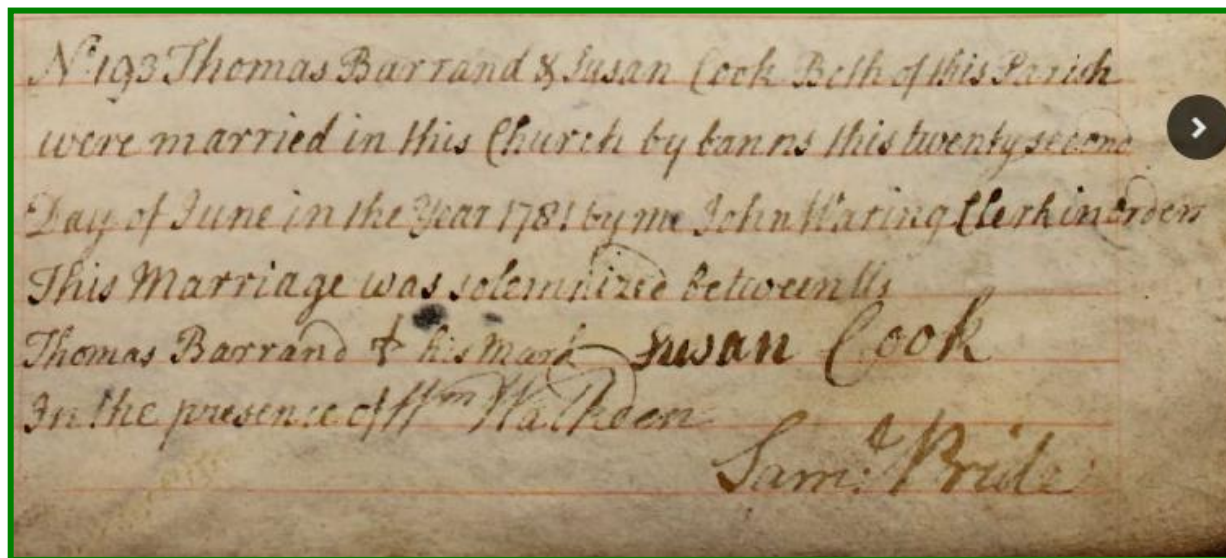 No. 193 Thomas Barrand & Susan Cook Both of this Parish
were married in this Church by banns this twenty second
Day of June in the Year 1781 by me John Waring Clerk in Orders
This Marriage was solemnized between Us
Thomas Barrand + his Mark Suwan Cook
In the presence of Wm Walkden
Saml. Pride